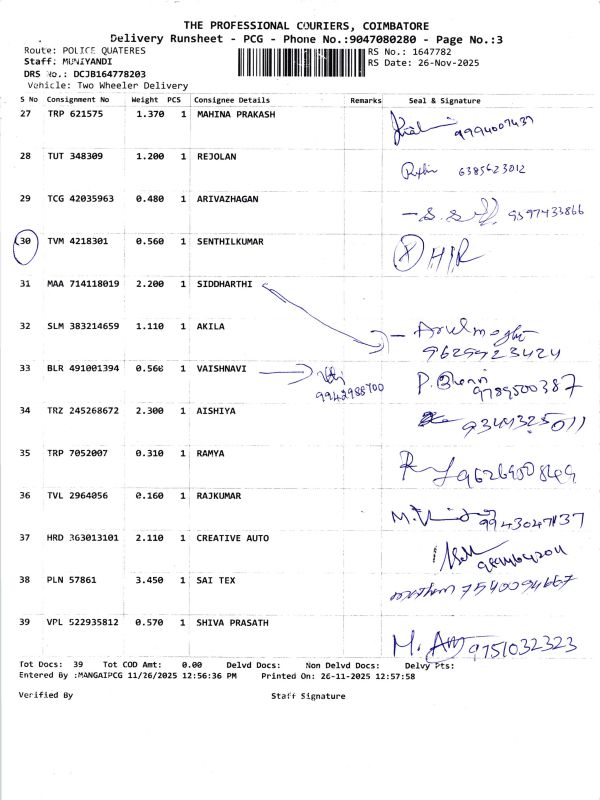 THE PROFESSIONAL COURIERS, COIMBATORE
Delivery Runsheet - PCG - Phone No.:9047080280 - Page No.:3
Route: POLICE QUATERES
RS No.: 1647782
Staff: MUNIYANDI
RS Date: 26-Nov-2025
DRS No.: DCJB164778203
Vehicle: Two Wheeler Delivery
S No Consignment No Weight PCS Consignee Details Remarks Seal & Signature
27 TRP 621575 1.370 1 MAHINA PRAKASH
28 TUT 348309 1.200 1 REJOLAN 6385623012
29 TCG 42035963 0.480 1 ARIVAZHAGAN 9597433866
30 TVM 4218301 0.560 1 SENTHILKUMAR
31 MAA 714118019 2.200 1 SIDDHARTHI
32 SLM 383214659 1.110 1 AKILA
9629923424
33 BLR 491001394 0.560 1 VAISHNAVI 9789500387
9942988700
34 TRZ 245268672 2.300 1 AISHIYA 9344325011
35 TRP 7052007 0.310 1 RAMYA
36 TVL 2964056 0.160 1 RAJKUMAR 9943047137
37 HRD 363013101 2.110 1 CREATIVE AUTO
38 PLN 57861 3.450 1 SAI TEX
39 VPL 522935812 0.570 1 SHIVA PRASATH
9751032323
Tot Docs: 39 Tot COD Amt: 0.00 Delvd Docs: Non Delvd Docs: Delvy Pts:
Entered By :MANGAIPCG 11/26/2025 12:56:36 PM Printed On: 26-11-2025 12:57:58
Verified By Staff Signature